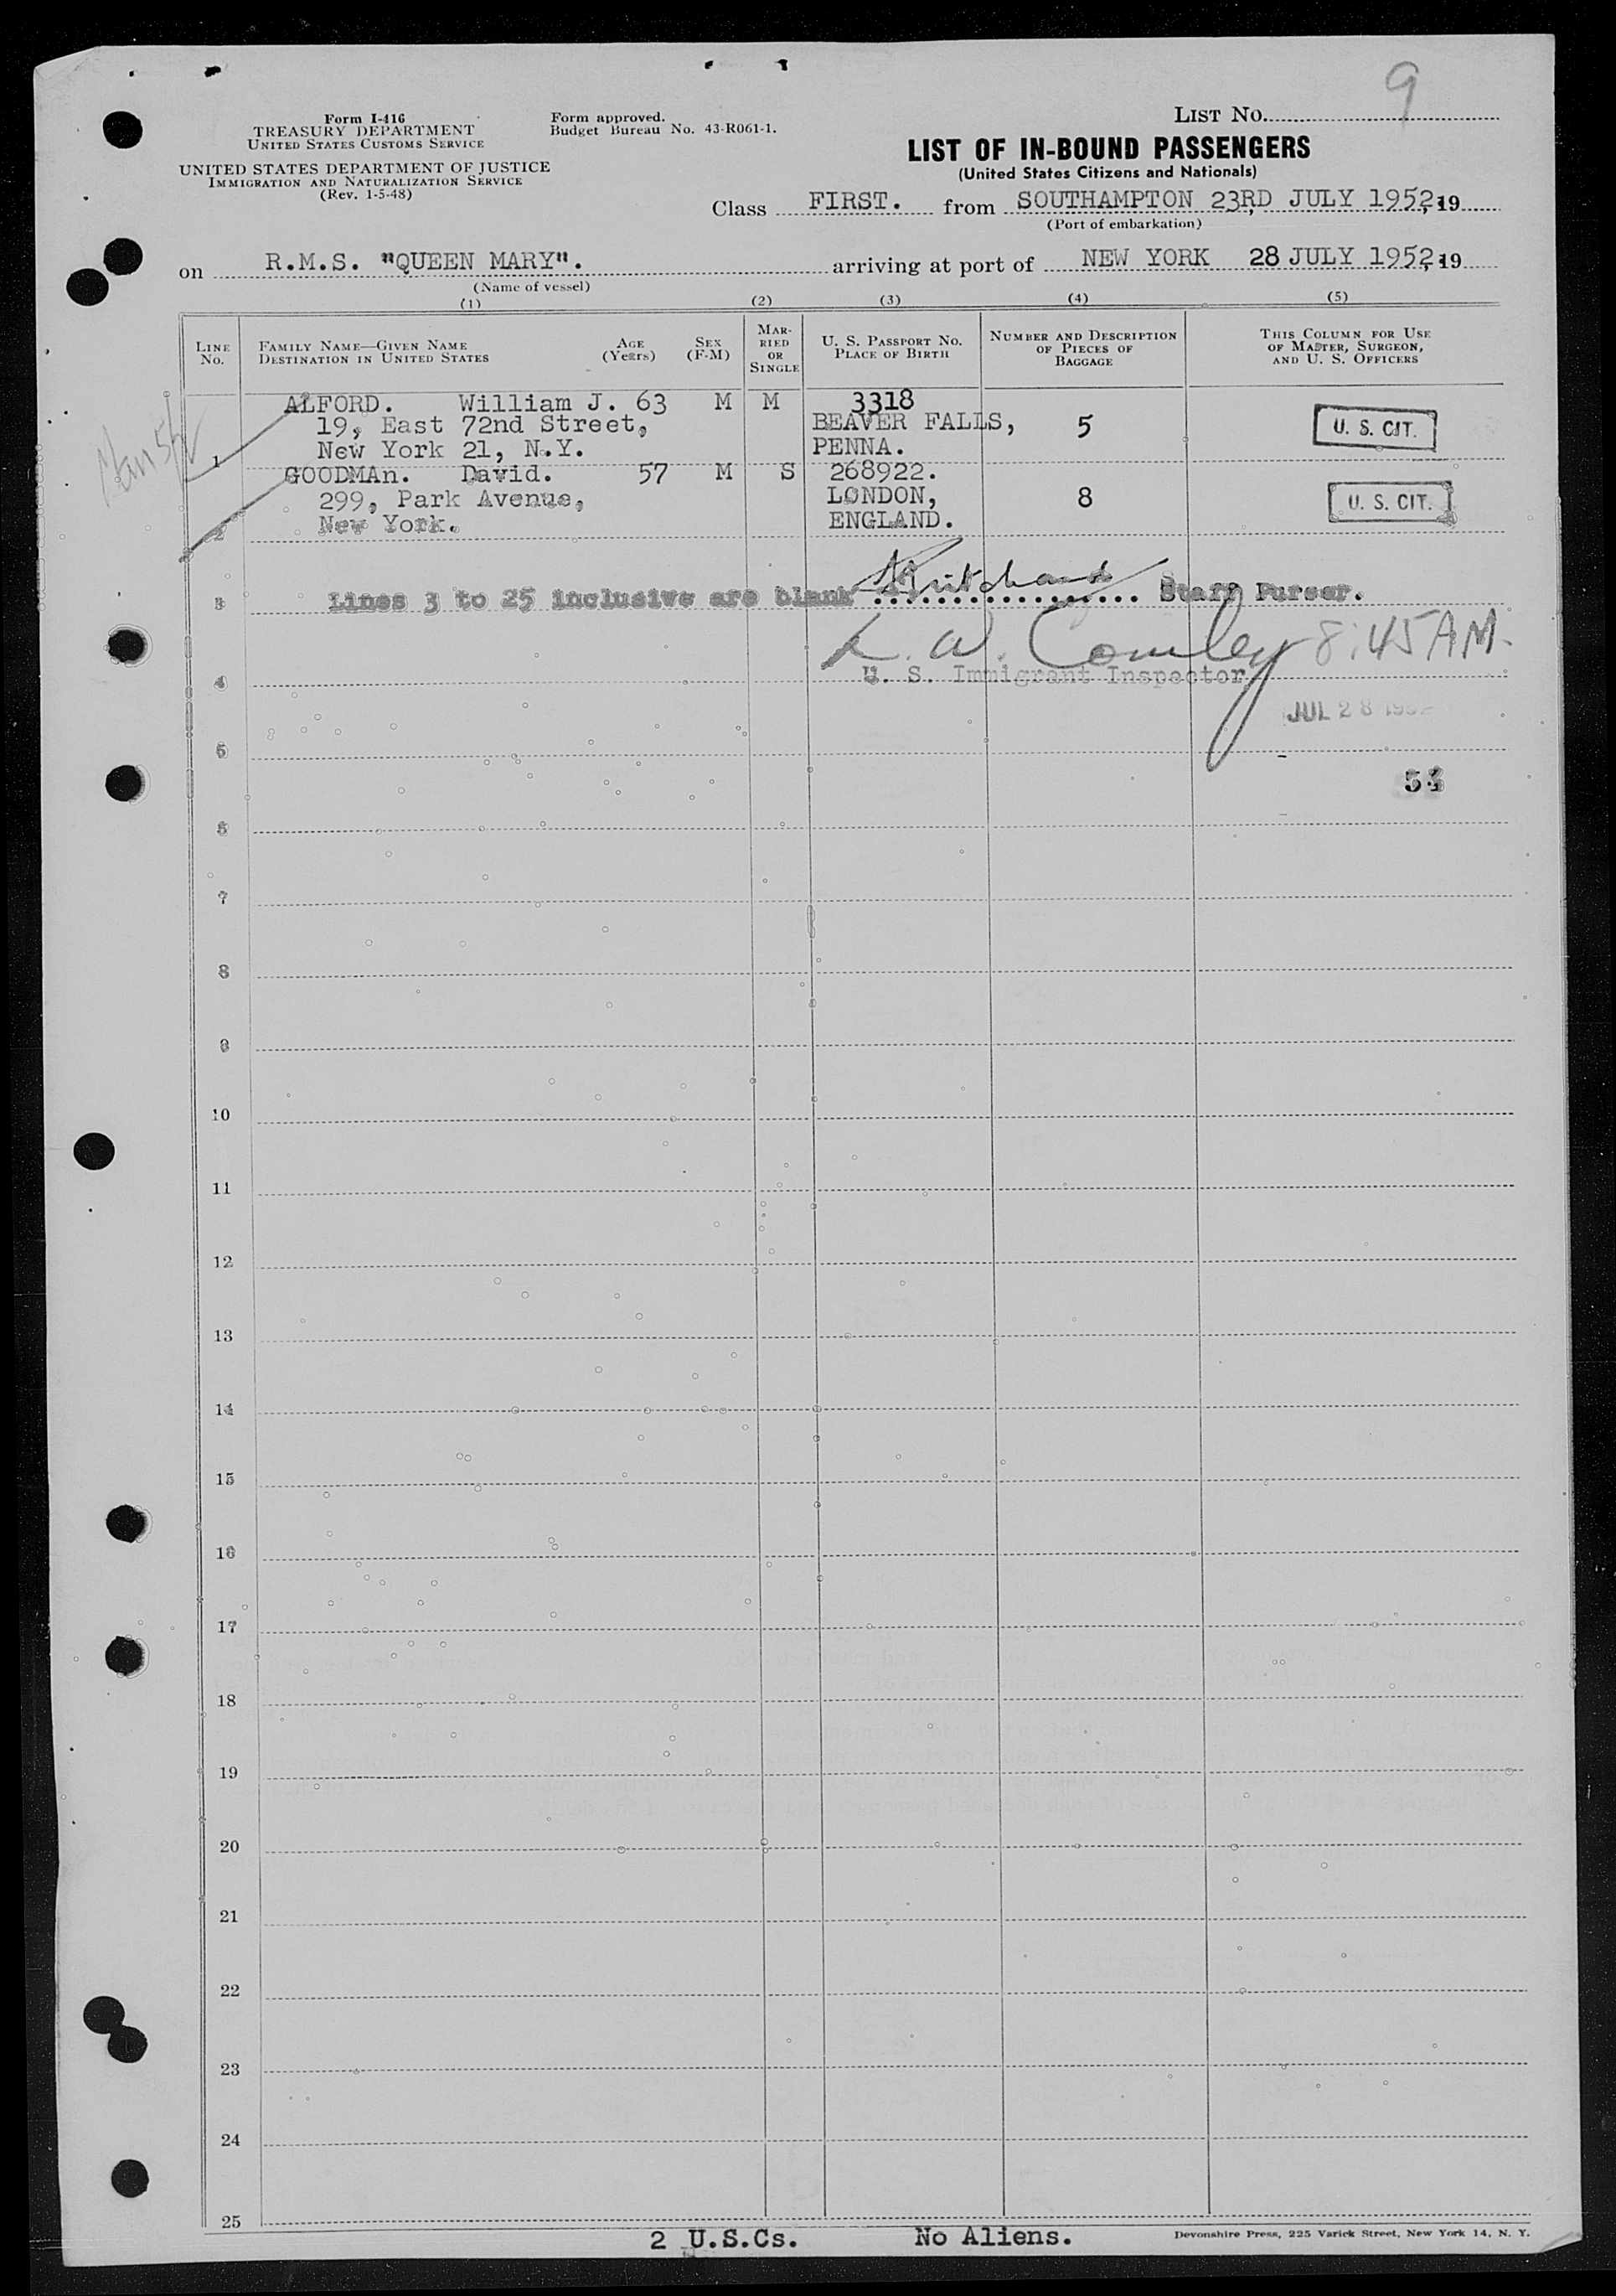 9
Form I-416
TREASURY DEPARTMENT
UNITED STATES CUSTOMS SERVICE
UNITED STATES DEPARTMENT OF JUSTICE
IMMIGRATION AND NATURALIZATION SERVICE
(Rev. 1-5-48)
Form approved.
Budget Bureau No. 43-R061-1.
LIST No.
LIST OF IN-BOUND PASSENGERS
(United States Citizens and Nationals)
Class FIRST. from SOUTHAMPTON 23RD JULY 1952, 19
(Port of embarkation)
on R.M.S. "QUEEN MARY". arriving at port of NEW YORK 28 JULY 1952, 19
(Name of vessel)
(1) (2) (3) (4) (5)
LINE No. FAMILY NAME—GIVEN NAME DESTINATION IN UNITED STATES AGE (Years) SEX (F-M) MARRIED OR SINGLE U. S. PASSPORT No. PLACE OF BIRTH NUMBER AND DESCRIPTION OF PIECES OF BAGGAGE THIS COLUMN FOR USE OF MASTER, SURGEON, AND U. S. OFFICERS
ALFORD. William J. 63 M M 3318
19, East 72nd Street, BEAVER FALLS, 5 U. S. CIT.
1 New York 21, N.Y. PENNA.
GOODMAn. David. 57 M S 268922.
299, Park Avenue, LONDON, 8 U. S. CIT.
2 New York. ENGLAND.
3 Lines 3 to 25 inclusive are blank Pritchard Staff Purser.
L. W. 8:45 AM.
4 U. S. Immigrant Inspector
JUL 28 1952
5
6
7
8
9
10
11
12
13
14
15
16
17
18
19
20
21
22
23
24
25
2 U.S.Cs. No Aliens.
Devonshire Press, 225 Varick Street, New York 14, N. Y.